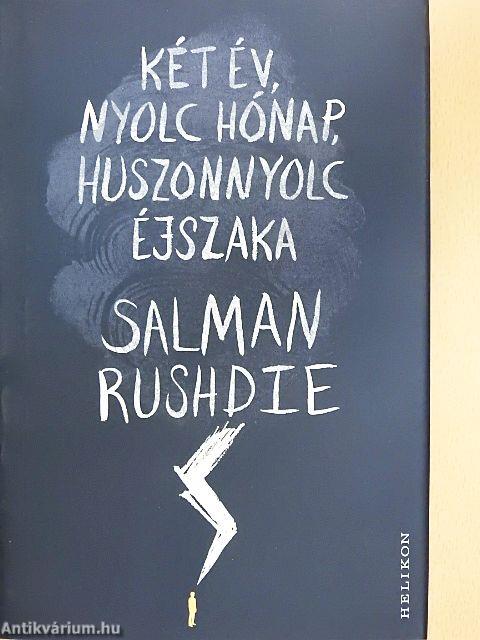 KÉT ÉV,
NYOLC HÓNAP,
HUSZONNYOLC
ÉJSZAKA
SALMAN
RUSHDIE
HELIKON
Antikvárium.hu